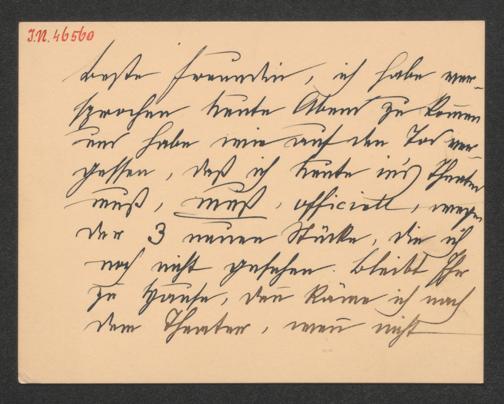 I.N. 46560
beste Freundin, ich habe ver-
sprochen heute Abend zu komen
und habe wie auf den Tod ver-
gessen, daß ich heute in's Theater
muß, muß, officiell, wegen
der 3 neuen Stücke, die ich
noch nicht gesehen. Bleibt Ihr
zu Hause, den käme ich nach
dem Theater, wen nicht